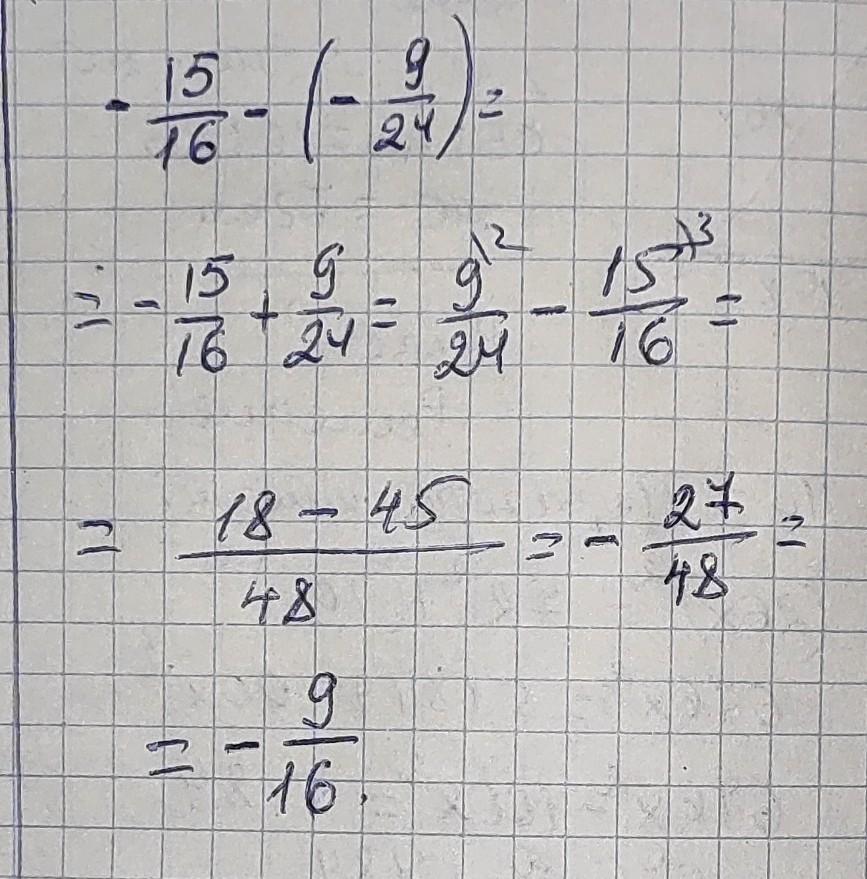 - 15/16 - (- 9/24) =
= - 15/16 + 9/24 = 9\2/24 - 15\3/16 =
= 18 - 45/48 = - 27/48 =
= - 9/16.